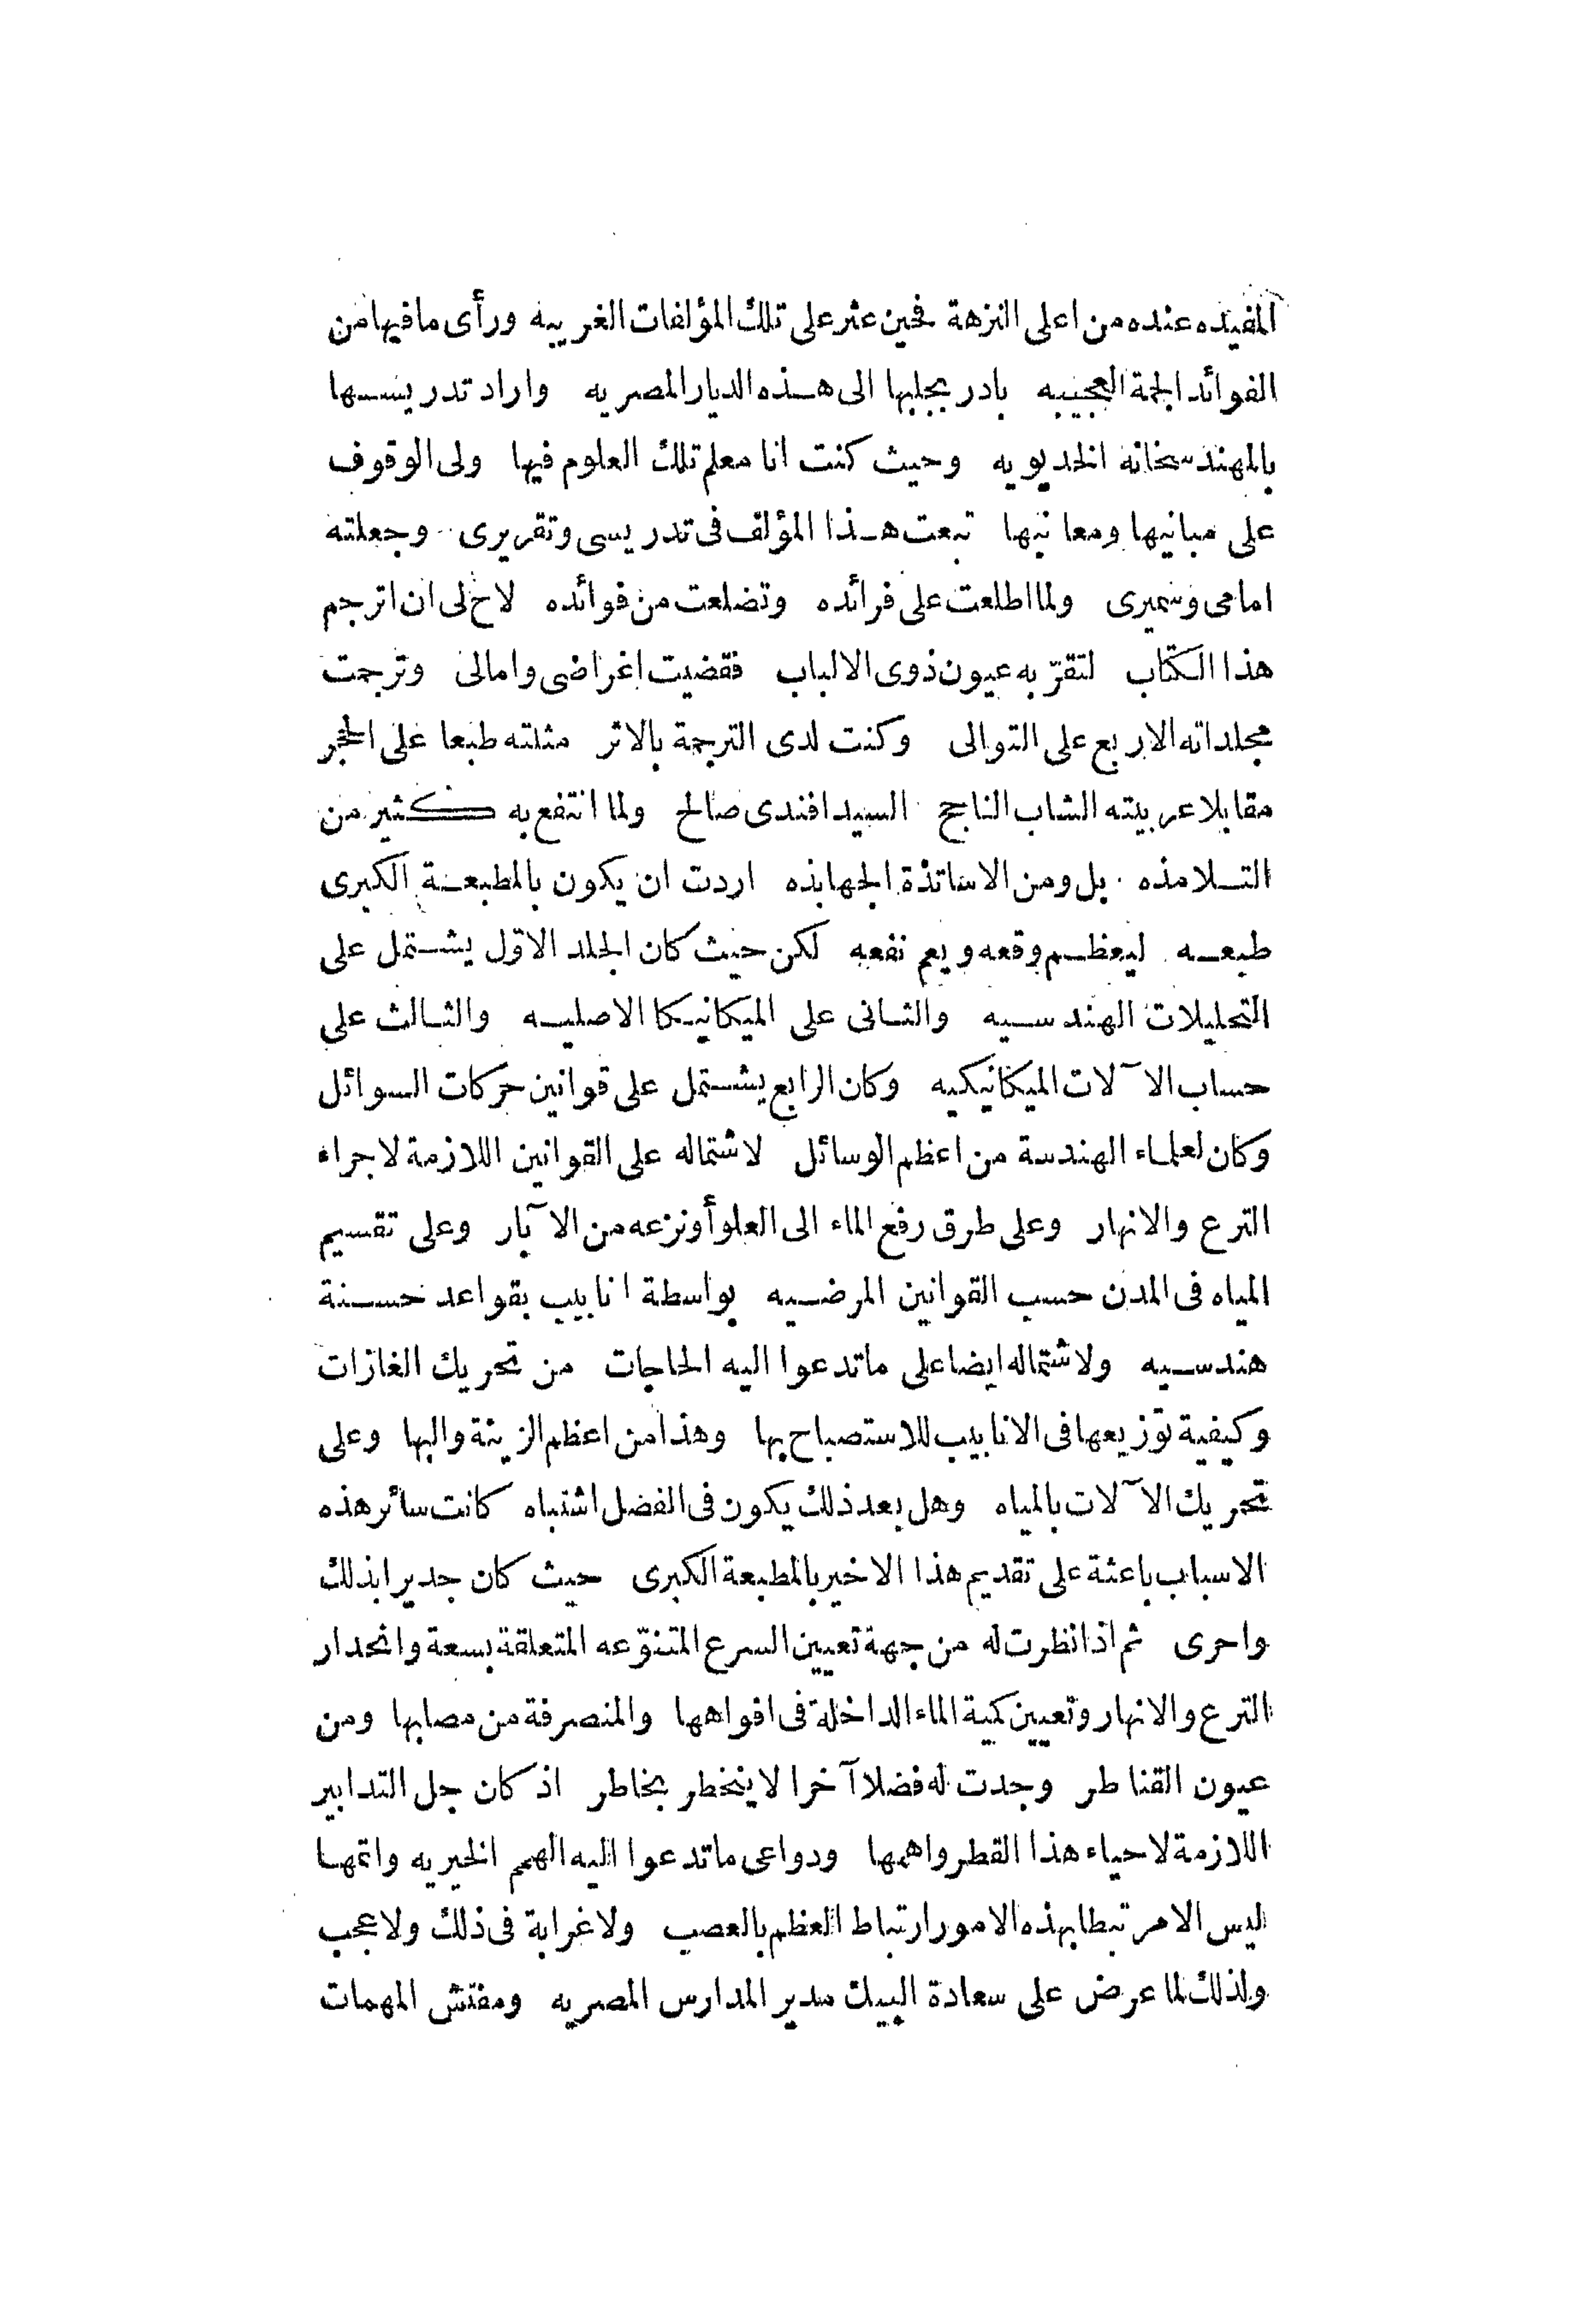 المفيده عنده من اعلى النزهة فحين عثر على تلك المؤلفات الغريبه ورأى ما فيها من
الفوائد الجمة العجيبه بادر بجلبها الى هذه الديار المصريه واراد تدريسها
بالمهندسخانه الخديويه وحيث كنت انا معلم تلك العلوم فيها ولى الوقوف
على مبانيها ومعانيها تبعت هذا المؤلف فى تدريسى وتقريرى وجعلته
امامى وسميرى ولما اطلعت على فرائده وتضلعت من فوائده لاح لى ان اترجم
هذا الكتاب لتقرّ به عيون ذوى الالباب فقضيت اغراضى وامالى وترجمت
مجلداته الاربع على التوالى وكنت لدى الترجمة بالاثر مثلته طبعا على الحجر
مقابلا عربيته الشاب الناجح السيد افندى صالح ولما انتفع به كثير من
التلامذه بل ومن الاساتذة الجهابذه اردت ان يكون بالمطبعة الكبرى
طبعه ليعظم وقعه ويعم نفعه لكن حيث كان الجلد الاوّل يشتمل على
التحليلات الهندسيه والثانى على الميكانيكا الاصليه والثالث على
حساب الآلات الميكانيكيه وكان الرابع يشتمل على قوانين حركات السوائل
وكان لعلماء الهندسة من اعظم الوسائل لاشتماله على القوانين اللازمة لاجراء
الترع والانهار وعلى طرق رفع الماء الى العلو أونزعه من الآبار وعلى تقسيم
المياه فى المدن حسب القوانين المرضيه بواسطة انابيب بقواعد حسنة
هندسيه ولاشتماله ايضا على ما تدعوا اليه الحاجات من تحريك الغازات
وكيفية توزيعها فى الانابيب للاستصباح بها وهذا من اعظم الزينة والبها وعلى
تحريك الآلات بالمياه وهل بعد ذلك يكون فى الفضل اشتباه كانت سائر هذه
الاسباب باعثة على تقديم هذا الاخير بالمطبعة الكبرى حيث كان جديرا بذلك
واحرى ثم اذا نظرت له من جهة تعيين السرع المتنوّعه المتعلقة بسعة وانحدار
الترع والانهار وتعيين كمية الماء الداخلة فى افواهها والمنصرفة من مصابها ومن
عيون القناطر وجدت له فضلا آخرا لا ينخطر بخاطر اذ كان جل التدابير
اللازمة لاحياء هذا القطر واهمها ودواعى ما تدعوا اليه الهمم الخيريه واتمها
اليس الامر تبطا بهذه الامور ارتباط العظم بالعصب ولا غرابة فى ذلك ولا عجب
ولذلك لما عرض على سعادة البيك مدير المدارس المصريه ومفتش المهمات